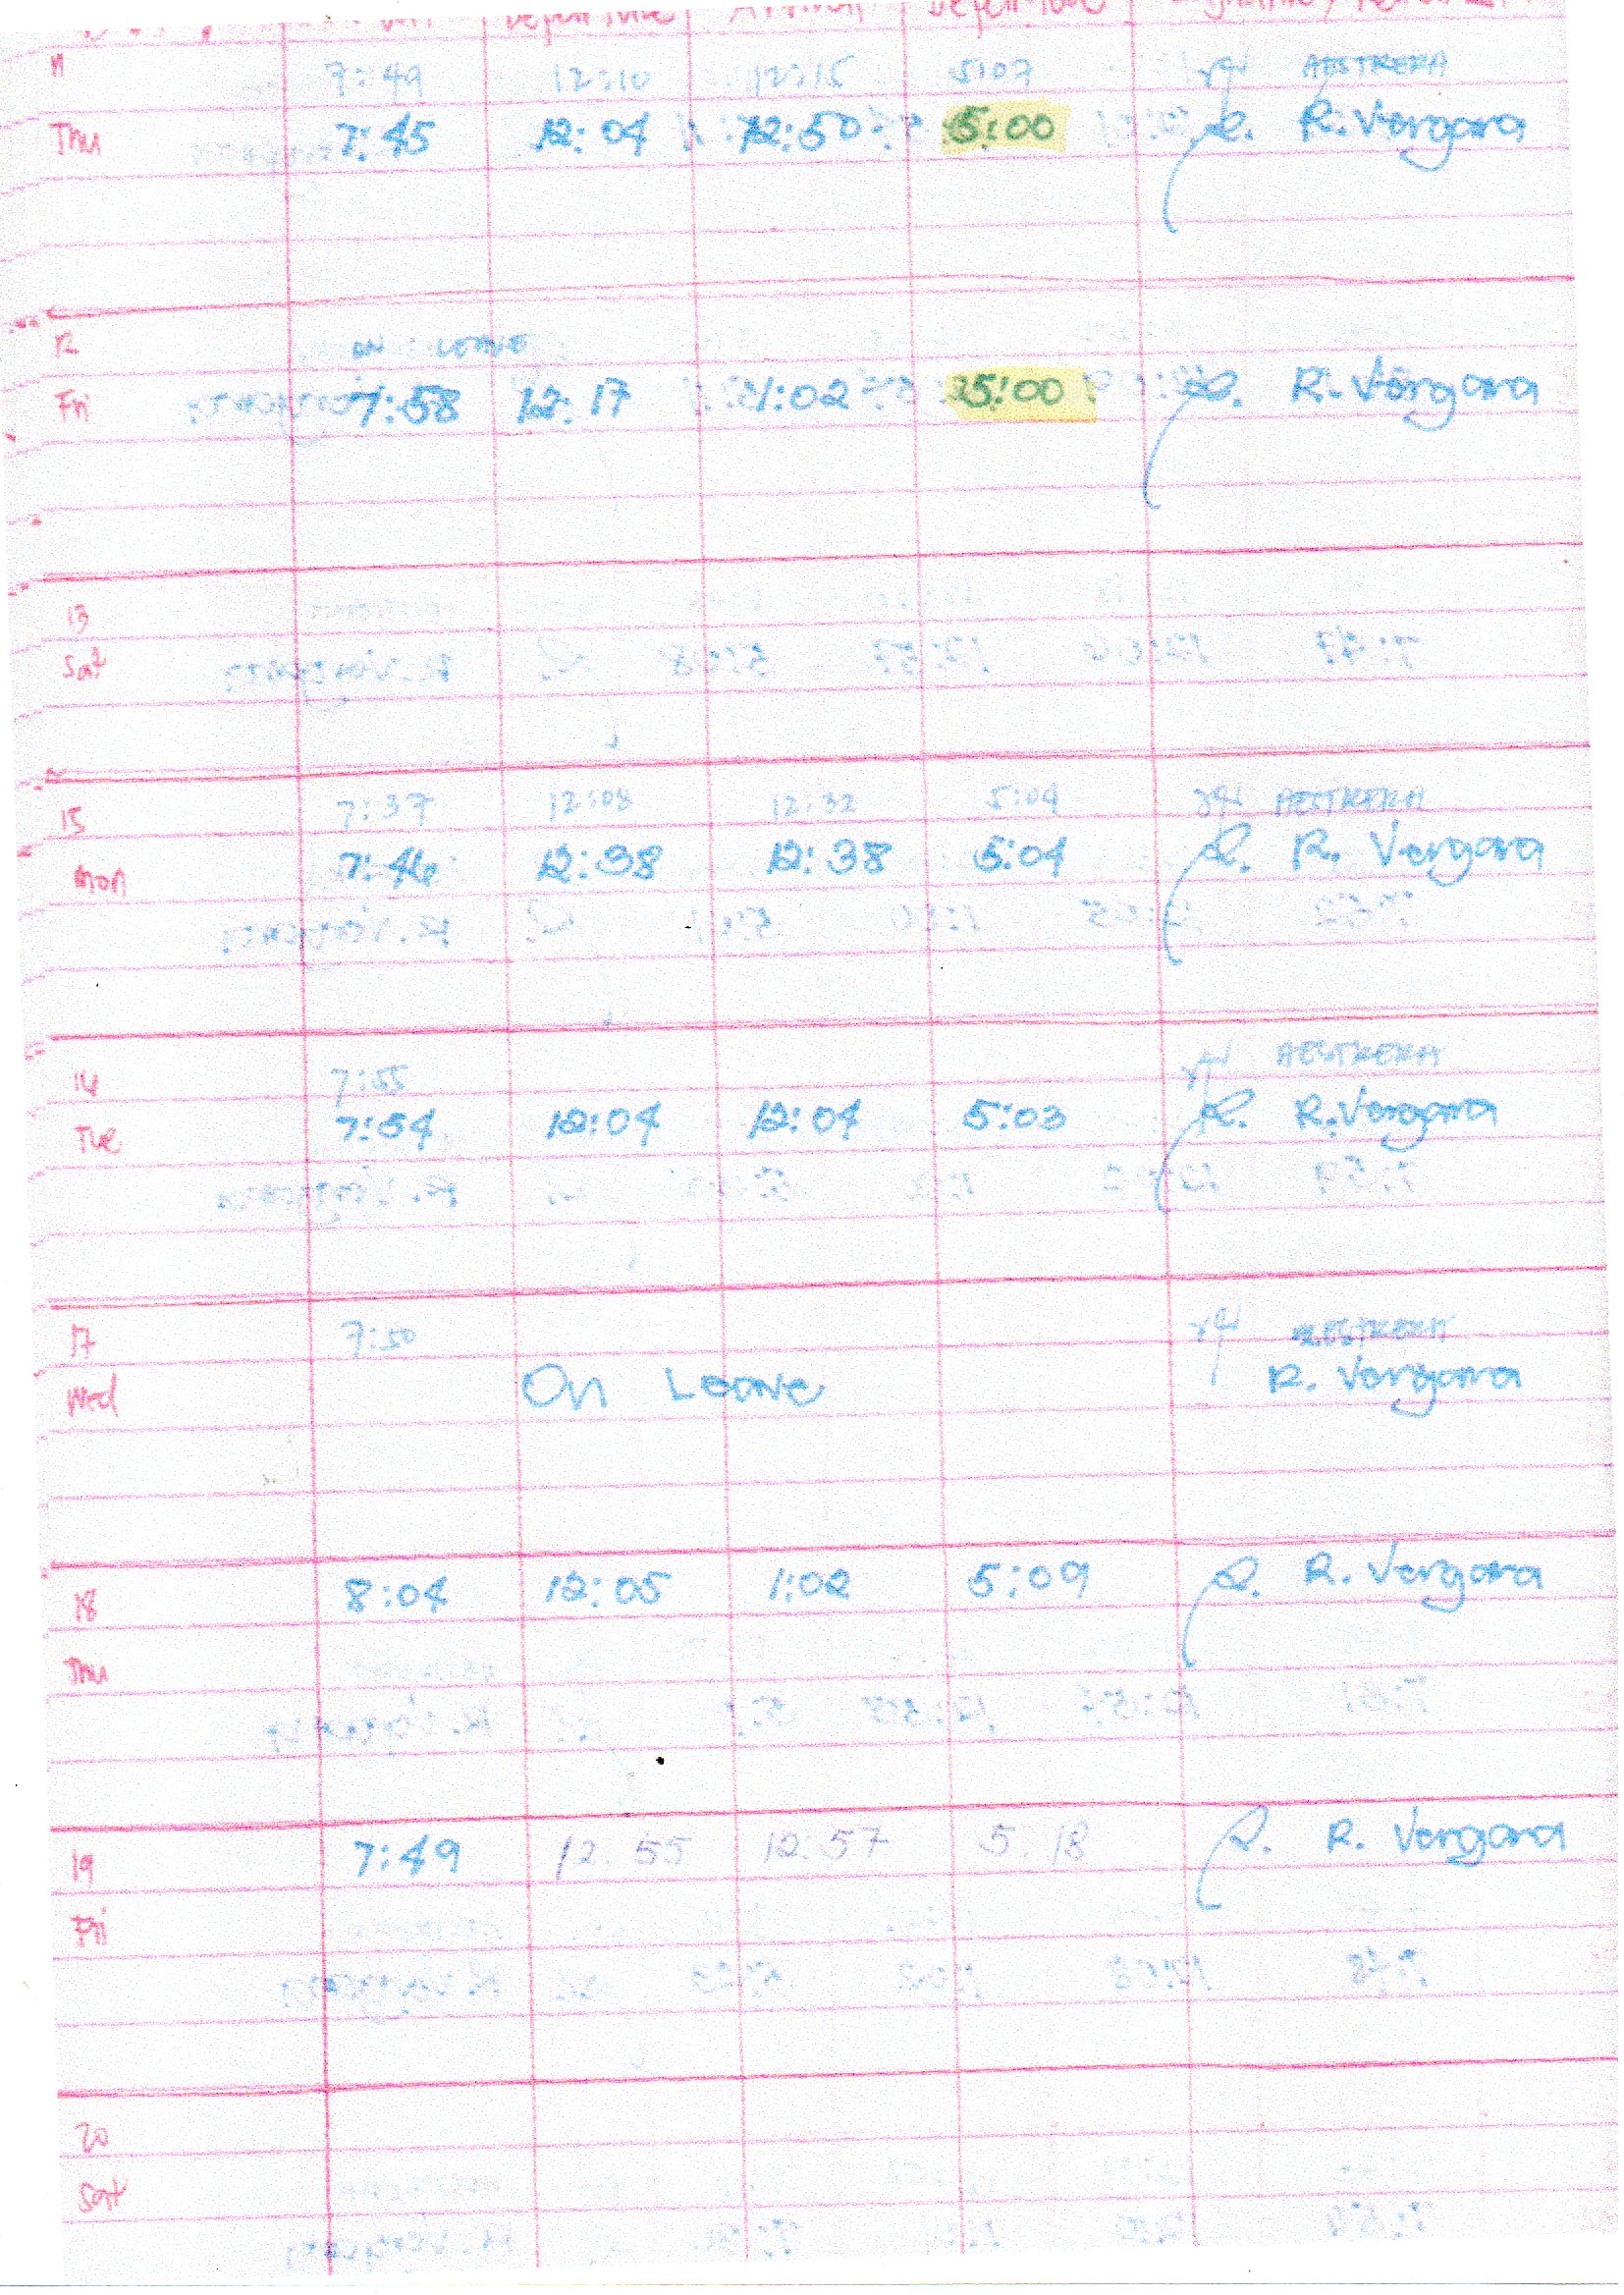 Departure Arrival Departure
11 7:49 12:10 12:15 5:07 AESTRERA
Thu 7:45 12:04 12:50 5:00 R. Vergara
12 ON LEAVE
Fri 7:58 12:17 1:02 5:00 R. Vergara
13
Sat
15 7:37 12:08 12:32 5:04 AESTRERA
Mon 7:46 12:38 12:38 5:04 R. Vergara
16 7:55 AESTRERA
Tue 7:54 12:04 12:04 5:03 R. Vergara
17 7:50 AESTRERA
Wed On Leave R. Vergara
18 8:04 12:05 1:02 5:09 R. Vergara
Thu
19 7:49 12:55 12:57 5:18 R. Vergara
Fri
20
Sat